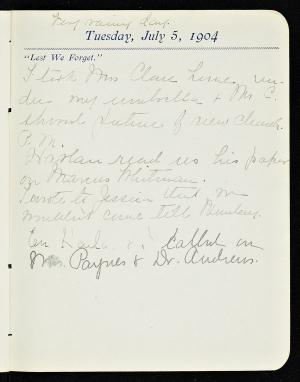 Very rainy day.
Tuesday, July 5, 1904
"Lest We Forget."
I took Mrs Clow home, un-
der my umbrella & Mr. C.
showed pictures of new Church.
P.M.
Harlan read us his paper
on Marcus Whitman.
I wrote to Jessica that we
wouldn't come till Sunday.
Eve called on
Mrs. Paynes & Dr. Andrews.